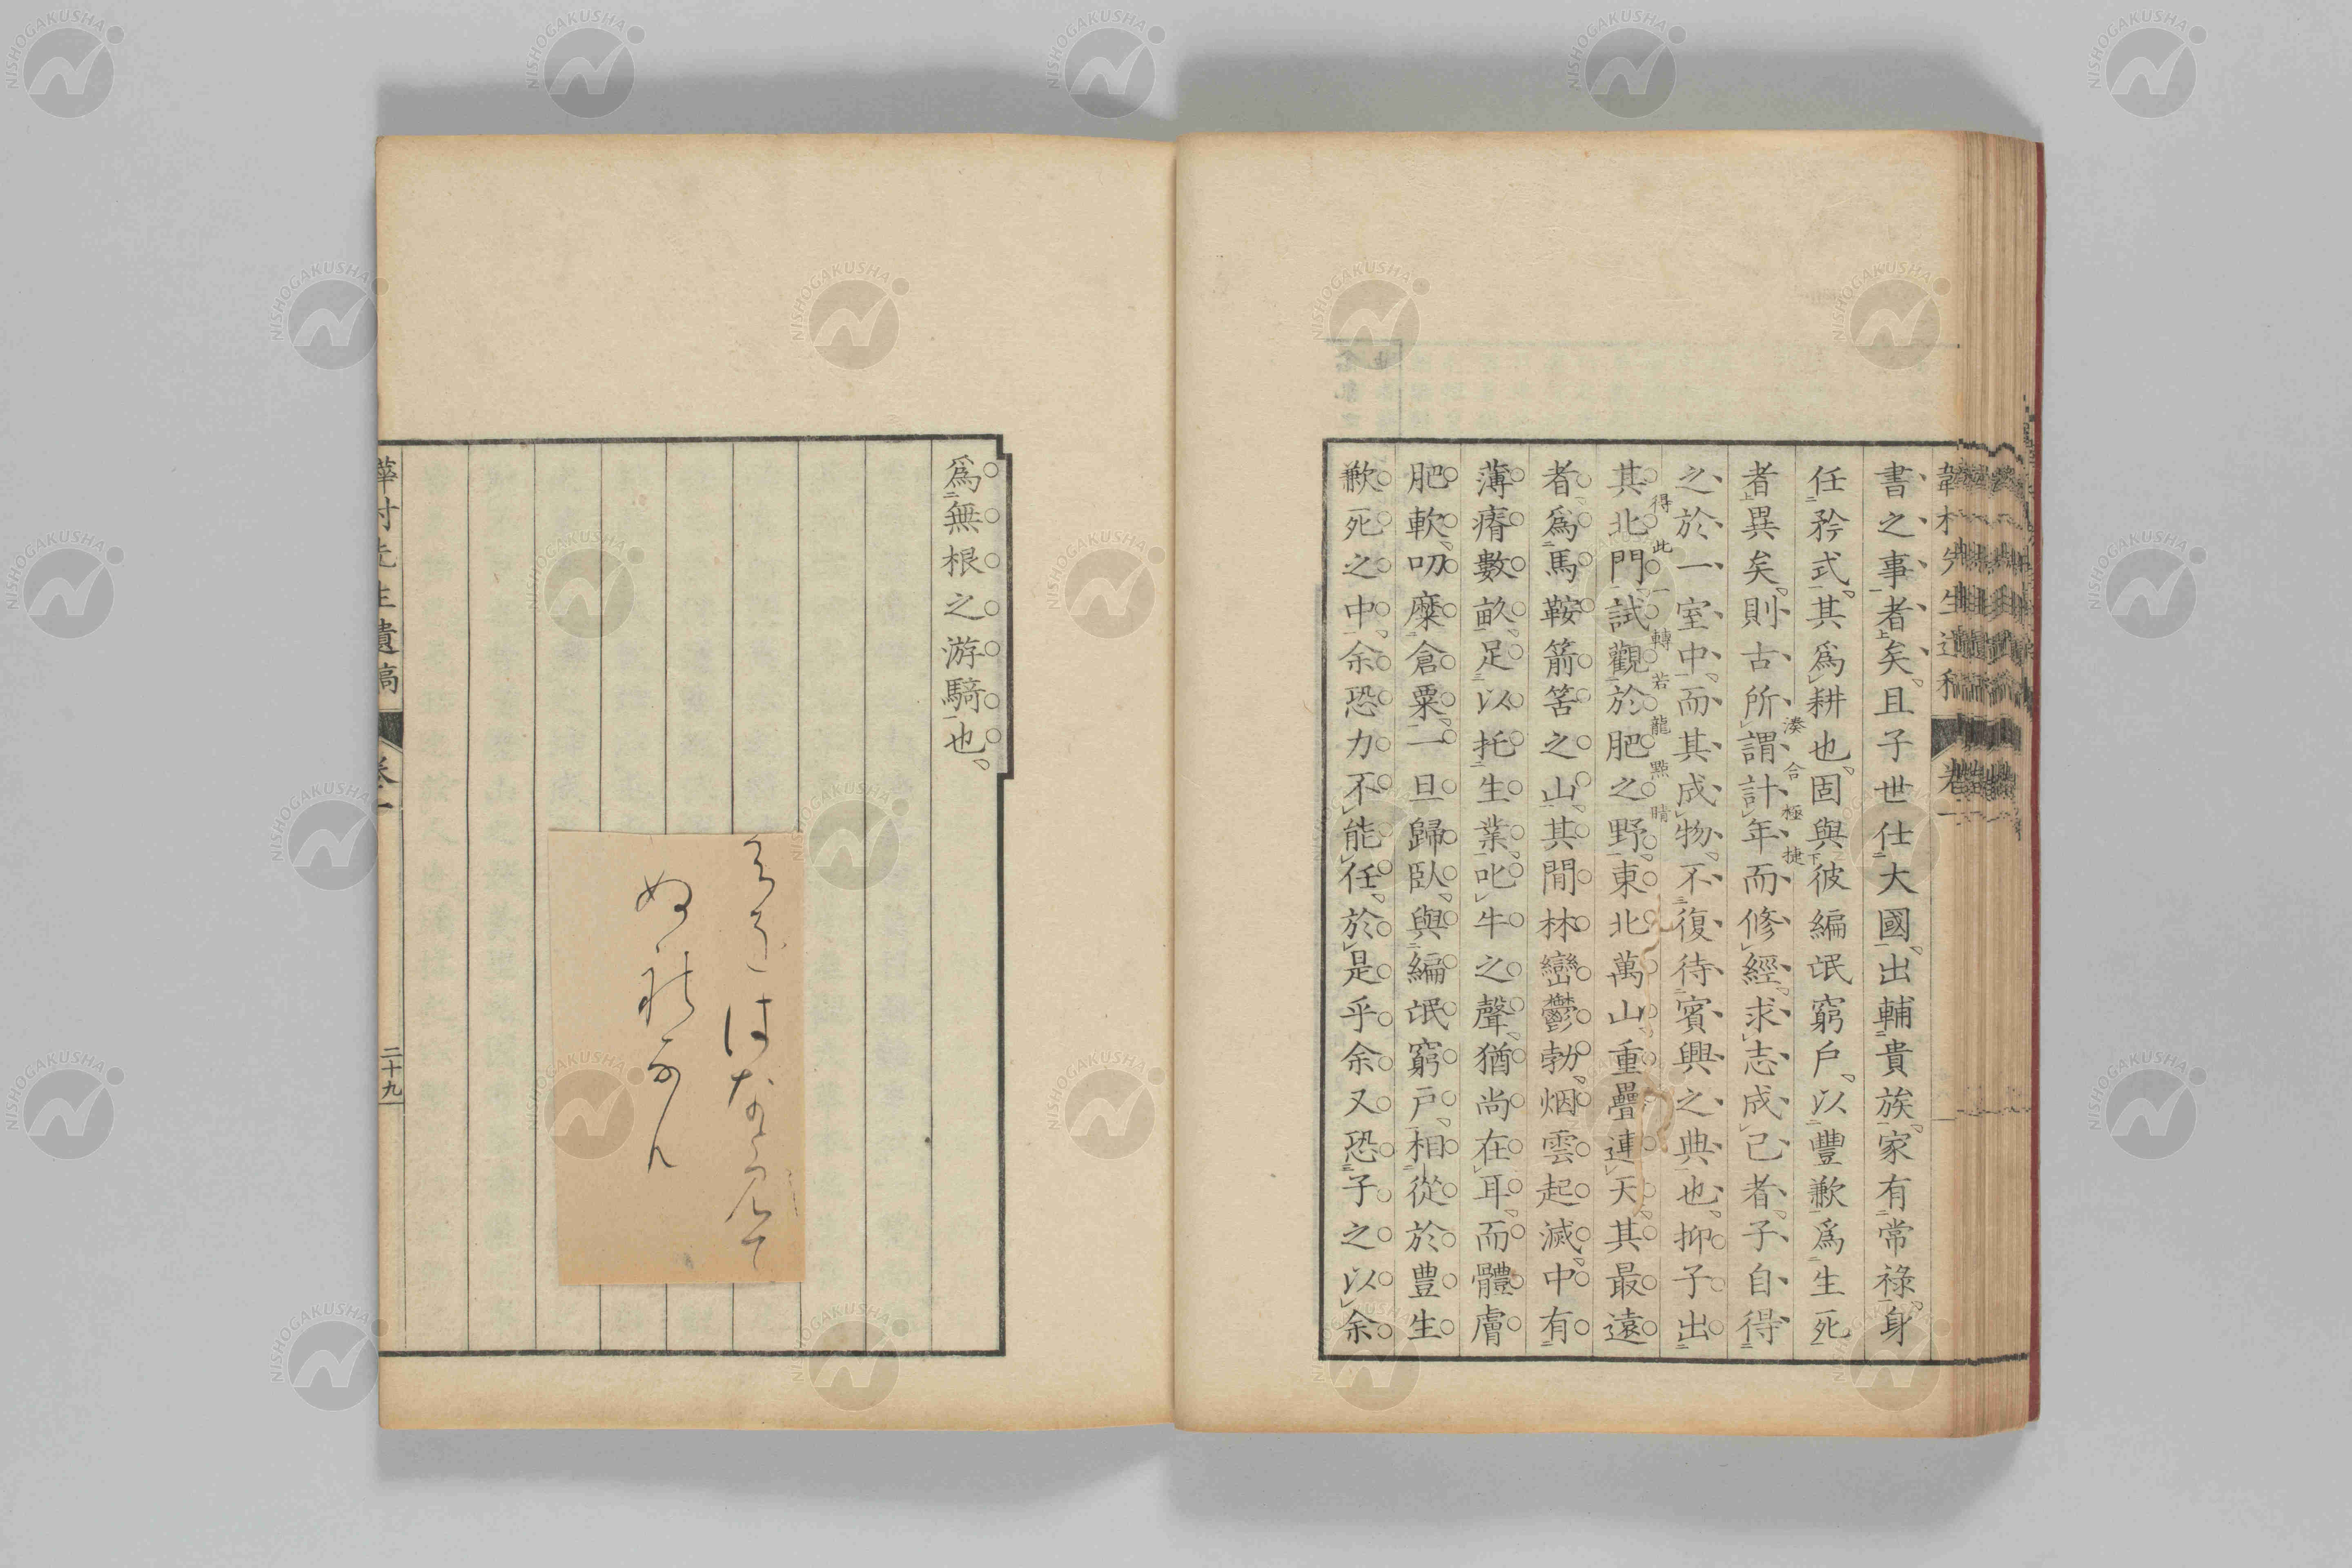 書之事者矣且子世仕大國出輔貴族家有常祿身
任矜式其爲耕也固與彼編氓窮戶以豐歉爲生死
者異矣則古所謂計年而修經求志成己者子自得
湊合極捷
之於一室中而其成物不復待賓興之典也抑子出
其北門試觀於肥之野東北萬山重疊連天其最遠
得此一轉若龍點睛
者爲馬鞍箭筈之山其閒林巒鬱勃烟雲起滅中有
薄瘠數畝足以托生業叱牛之聲猶尚在耳而體膚
肥軟叨糜倉粟一旦歸臥與編氓窮戶相從於豊生
歉死之中余恐力不能任於是乎余又恐子之以余
爲無根之游騎也
村先生遺稿 卷一 二十九
NISHOGAKUSHA